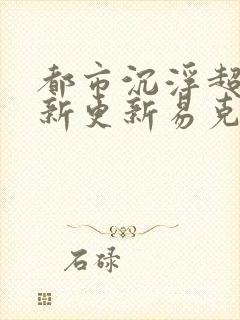 都市沉浮超
新更新易克
石碌